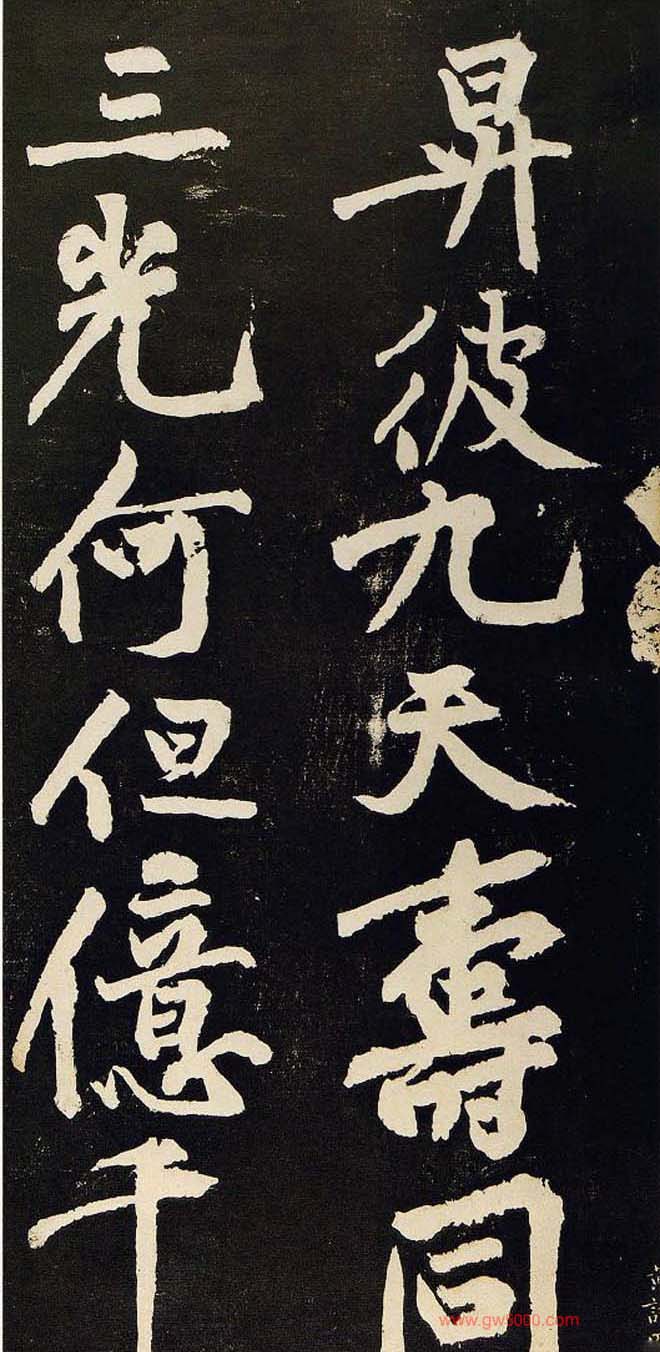 昇彼九天壽同
三光何但億千
www.gw8000.com